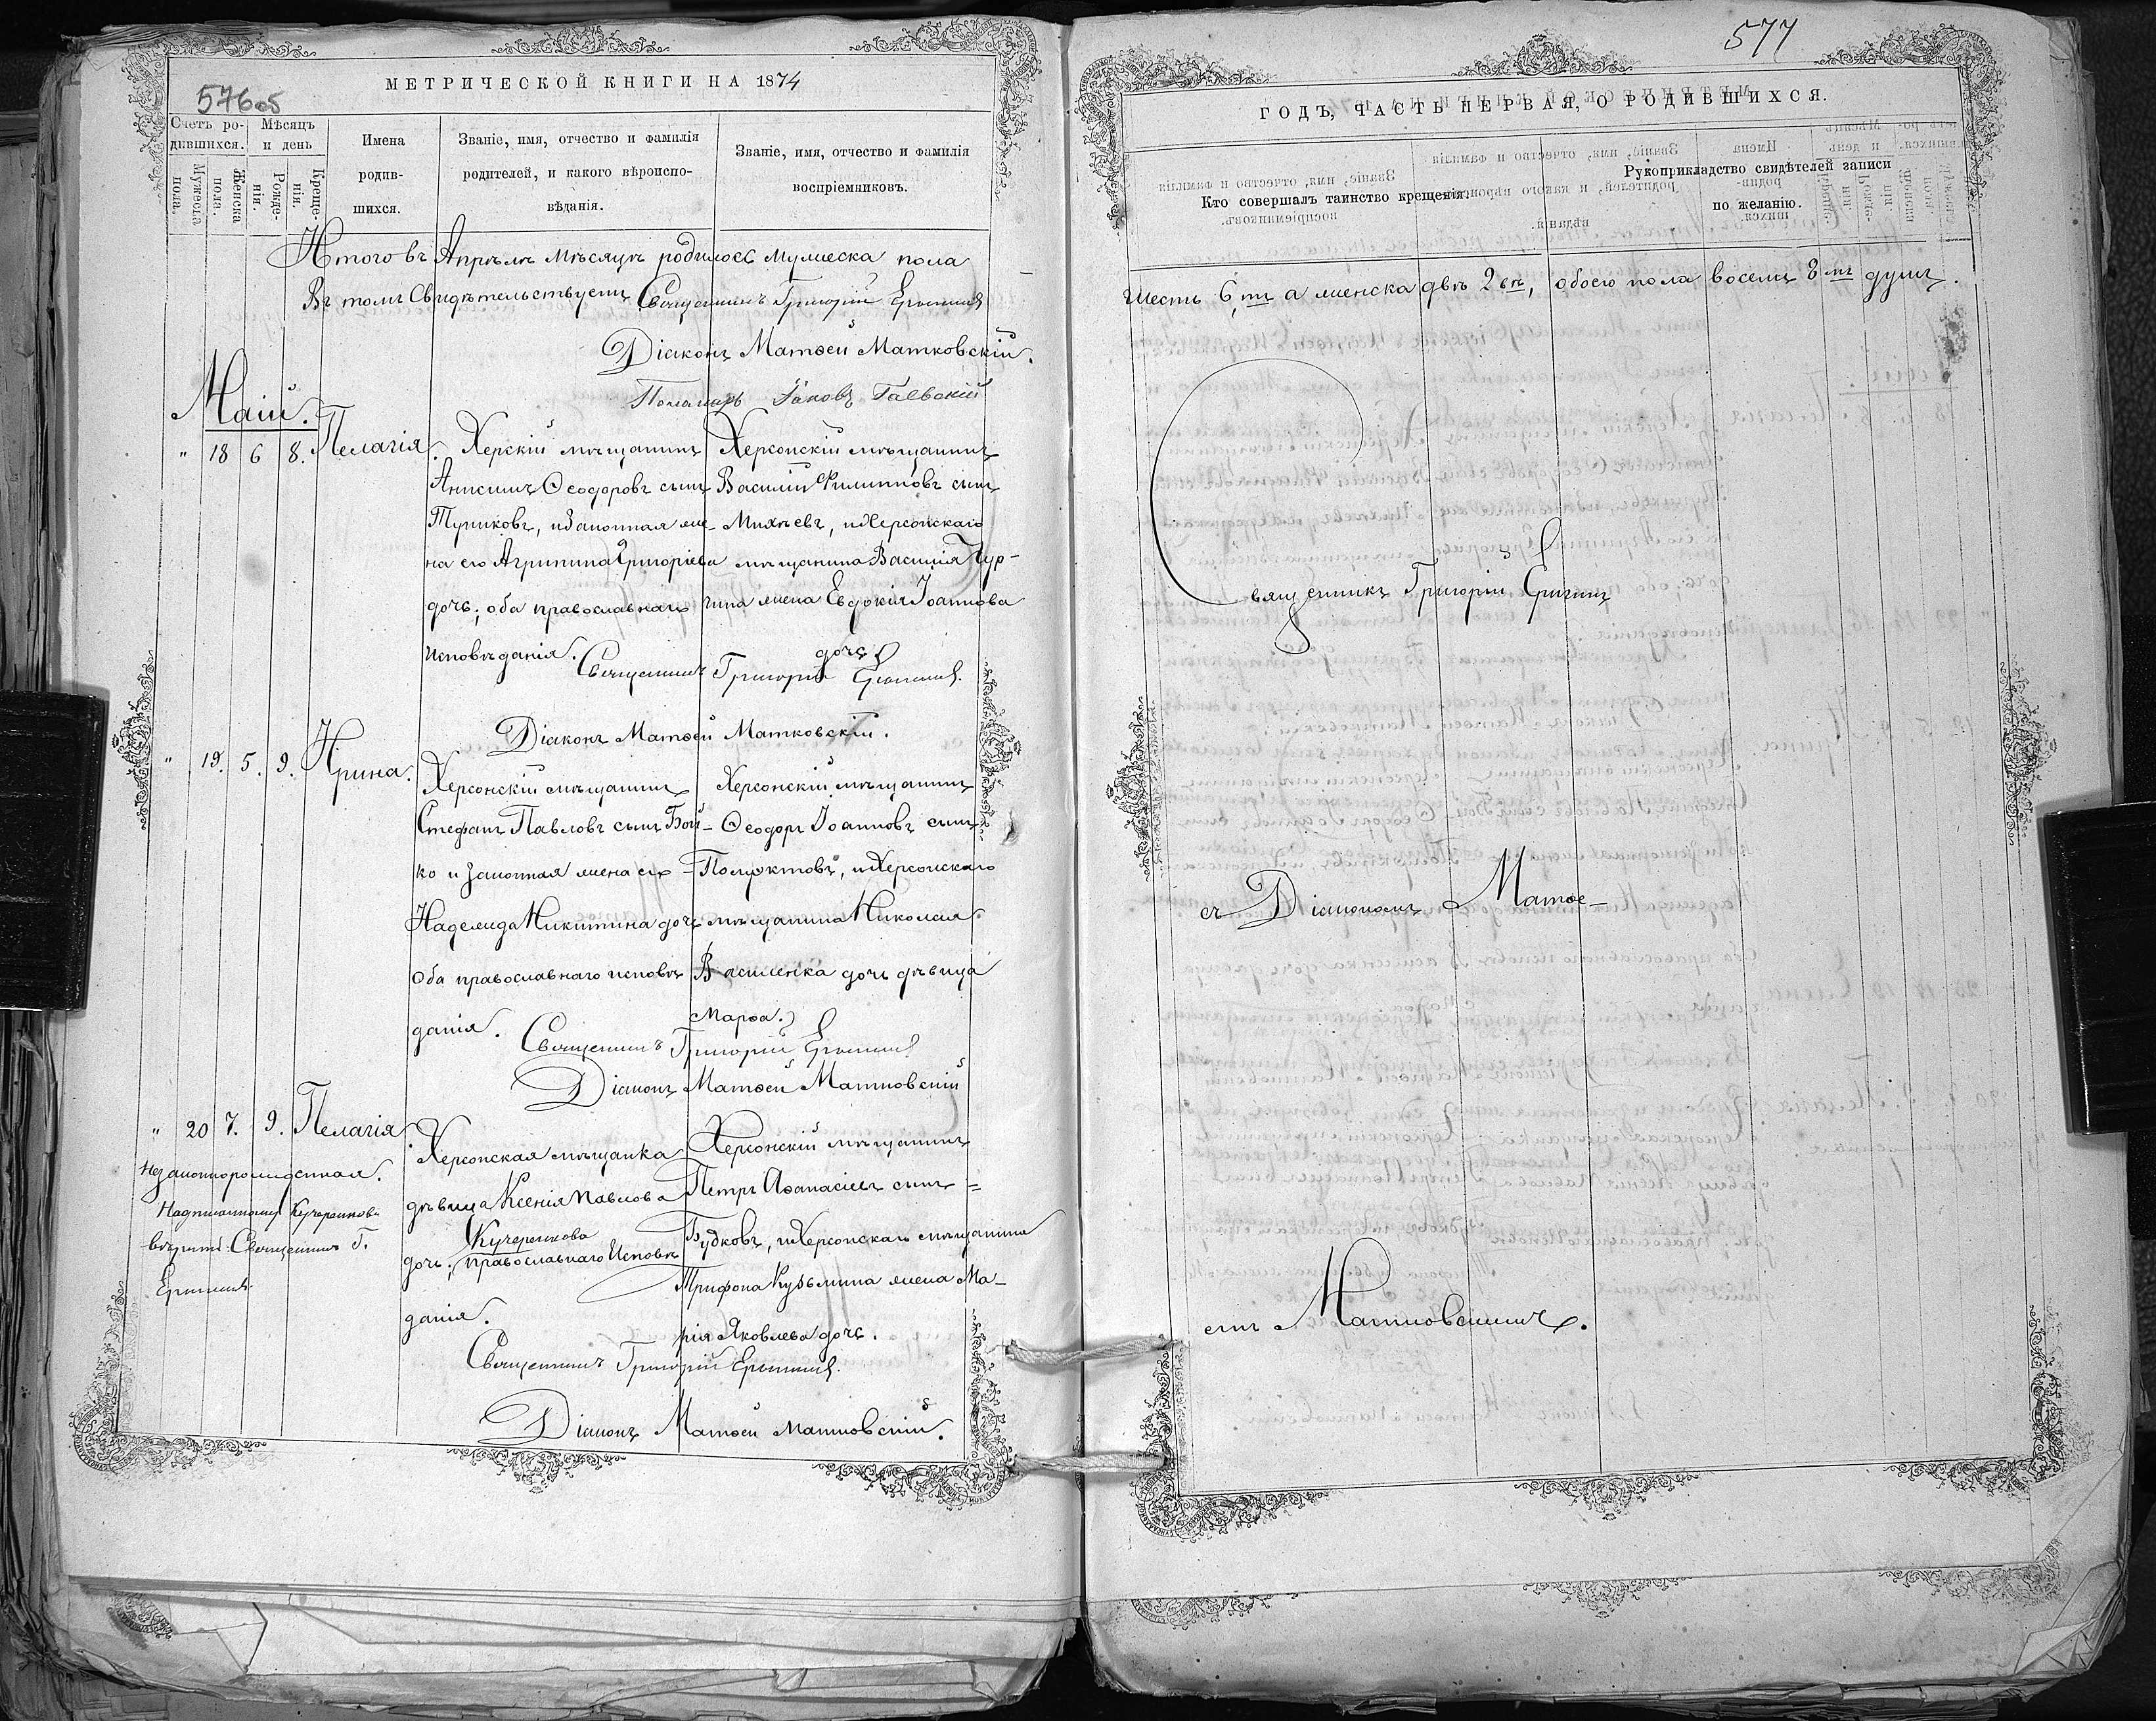 576об
МЕТРИЧЕСКОЙ КНИГИ НА 1874
Счетъ ро-
дившихся.
Мѣсяцъ
и день
Мужеска
пола.
Женска
пола.
Рожде-
нія.
Креще-
нія.
Имена
родив-
шихся.
Званіе, имя, отчество и фамилія
родителей, и какого вѣроиспо-
вѣданія.
Званіе, имя, отчество и фамилія
воспріемниковъ.
Итого въ Апрѣлѣ мѣсяцѣ родилось мужеска пола
Въ томъ свидѣтельствуемъ Священникъ Григорій
Діаконъ Матѳей Матковскій.
Пономарь Іаковъ Гаевскій
Маій.
" 18 6 8. Пелагія.
Херскій мѣщанинъ
Анисимъ Ѳеодоровъ сынъ
Туриковъ, и законная же-
на его Агрипина Григоріева
дочь; оба православнаго
исповѣданія.
Херсонскій мѣщанинъ
Василій Филипповъ сынъ
Михѣевъ, и Херсонскаго
мѣщанина Василія Чур-
гина жена Евдокія Іоаннова
дочь
Священникъ Григорій
Діаконъ Матѳей Матковскій.
" 19. 5. 9. Ирина.
Херсонскій мѣщанинъ
Стефанъ Павловъ сынъ Бой-
ко и законная жена его
Надежда Никитина дочь
Оба православнаго исповѣ
данія.
Херсонскій мѣщанинъ
Ѳеодоръ Іоанновъ сынъ
Полуэктовъ, и Херсонскаго
мѣщанина Николая
Василенка дочь дѣвица
Марѳа.
Священникъ Григорій
Діаконъ Матѳей Матковскій
" 20 7. 9. Пелагія.
Незаконнорожденная.
Надписанному Кучеренкова
вѣрить. Священникъ Г.
Херсонская мѣщанка
дѣвица Ксенія Павлова
Кучеренкова
дочь; православнаго исповѣ
данія.
Херсонскій мѣщанинъ
Петръ Аѳанасіевъ сынъ
Будковъ, и Херсонскаго мѣщанина
Трифона Кузьмина жена Ма-
рія Яковлева дочь.
Священникъ Григорій
Діаконъ Матѳей Матковскій.
577
ГОДЪ, ЧАСТЬ ПЕРВАЯ, О РОДИВШИХСЯ.
Кто совершалъ таинство крещенія.
Рукоприкладство свидѣтелей записи
по желанію.
Шесть 6ть а женска двѣ 2вѣ, обоего пола восемь 8мь душъ.
Священникъ Григорій
съ Діакономъ Матѳе-
емъ Матковскимъ.